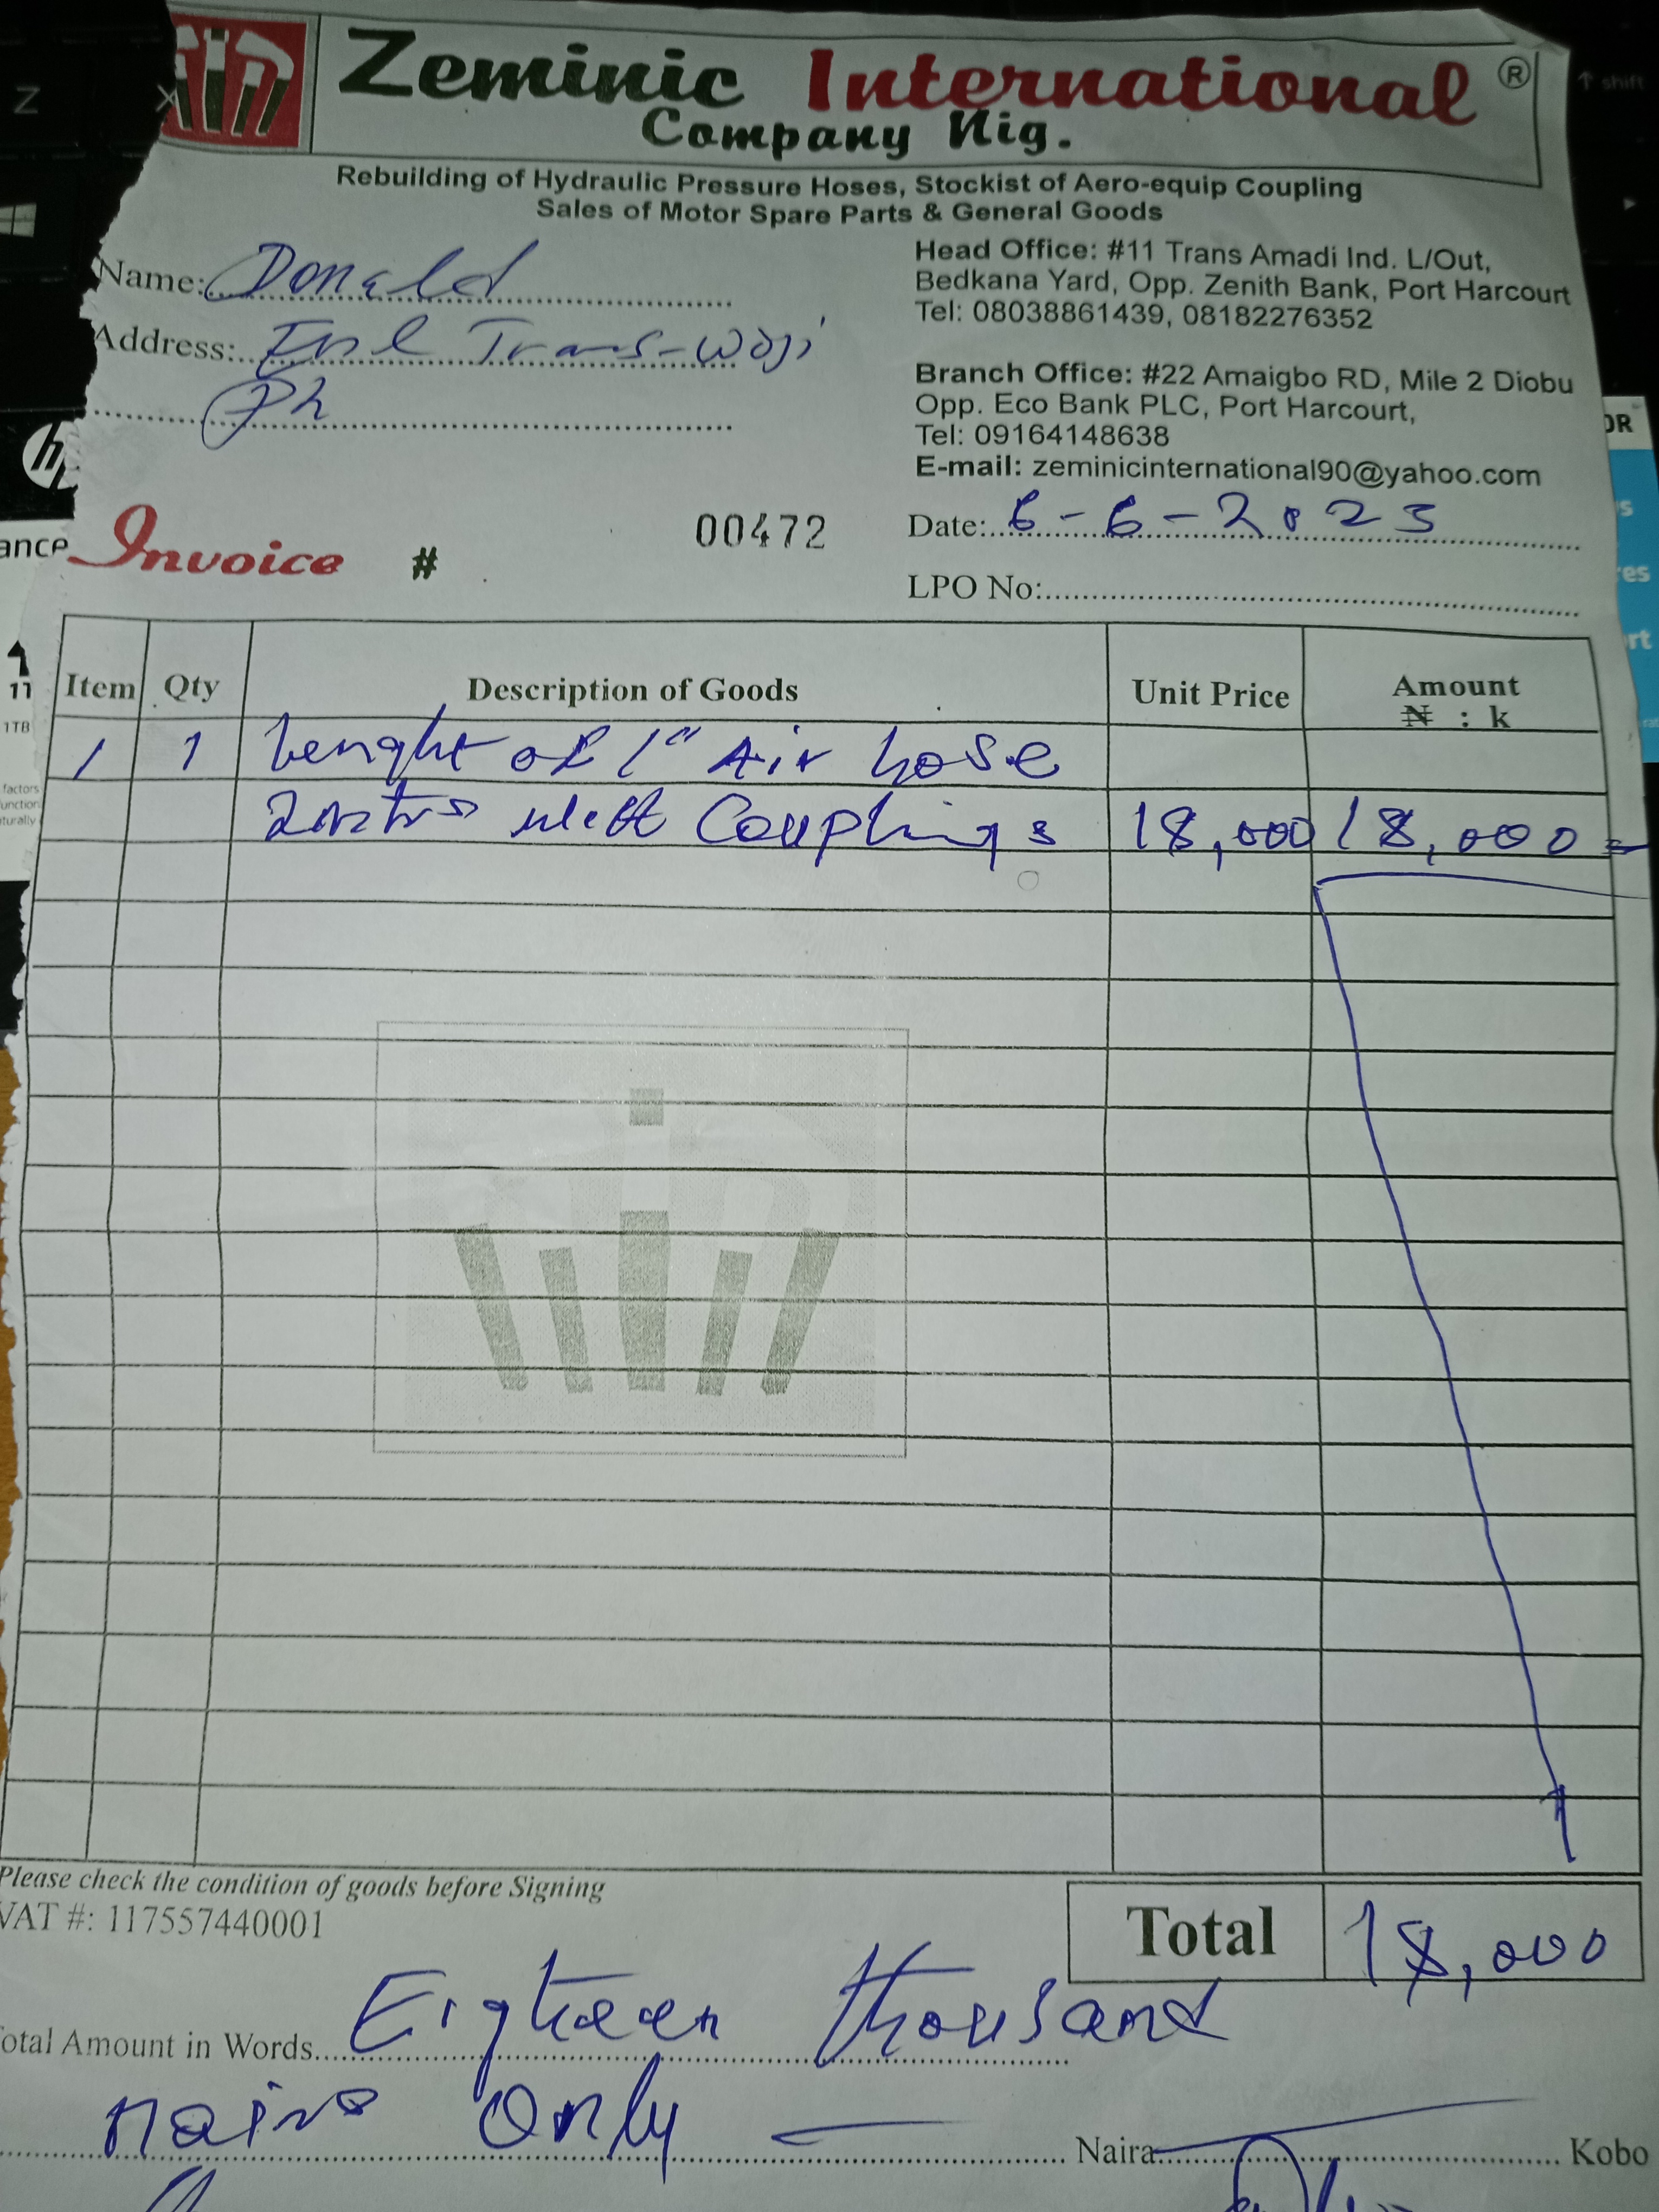 Zeminic International ®
Company Nig.
Rebuilding of Hydraulic Pressure Hoses, Stockist of Aero-equip Coupling
Sales of Motor Spare Parts & General Goods
Name: Donald
Address: Trans-Woji
Ph
Head Office: #11 Trans Amadi Ind. L/Out,
Bedkana Yard, Opp. Zenith Bank, Port Harcourt
Tel: 08038861439, 08182276352
Branch Office: #22 Amaigbo RD, Mile 2 Diobu
Opp. Eco Bank PLC, Port Harcourt,
Tel: 09164148638
E-mail: zeminicinternational90@yahoo.com
Invoice # 00472
Date: 6-6-2023
LPO No:
Item Qty Description of Goods Unit Price Amount
₦ : k
1 1 lenght of 1" Air hose
Couplings 18,000 18,000=
Please check the condition of goods before Signing
VAT #: 117557440001
Total 18,000
otal Amount in Words Eigteen thousand
naira Only
Naira Kobo